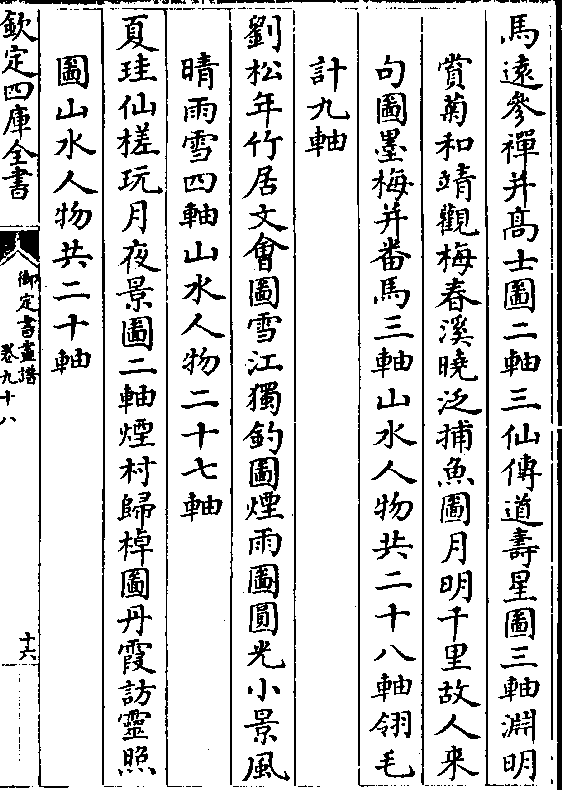 馬遠參禪并髙士圖二軸三仙傳道壽星圖三軸淵明
賞菊和靖觀梅春溪曉泛捕魚圖月明千里故人来
句圖墨梅并番馬三軸山水人物共二十八軸翎毛
計九軸
劉松年竹居文會圖雪江獨釣圖煙雨圖圓光小景風
晴雨雪四軸山水人物二十七軸
夏珪仙槎玩月夜景圖二軸煙村歸棹圖丹霞訪靈照
圖山水人物共二十軸
欽定四庫全書
御定書畫譜
卷九十八
十六